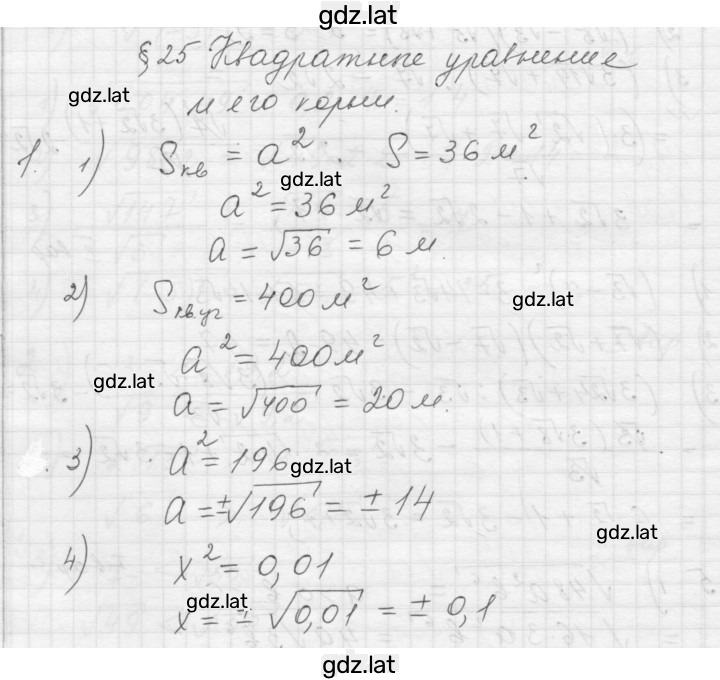 gdz.lat
§ 25 Квадратные уравнение
и его корни.
gdz.lat
1. 1) Sкв = a². S = 36 м².
gdz.lat
a² = 36 м²
a = √36 = 6 м.
2) Sкв.уг = 400 м²
gdz.lat
a² = 400 м²
gdz.lat
a = √400 = 20 м.
3) a² = 196
gdz.lat
a = ±√196 = ± 14
gdz.lat
4) x² = 0,01
gdz.lat
x = ± √0,01 = ± 0,1
gdz.lat